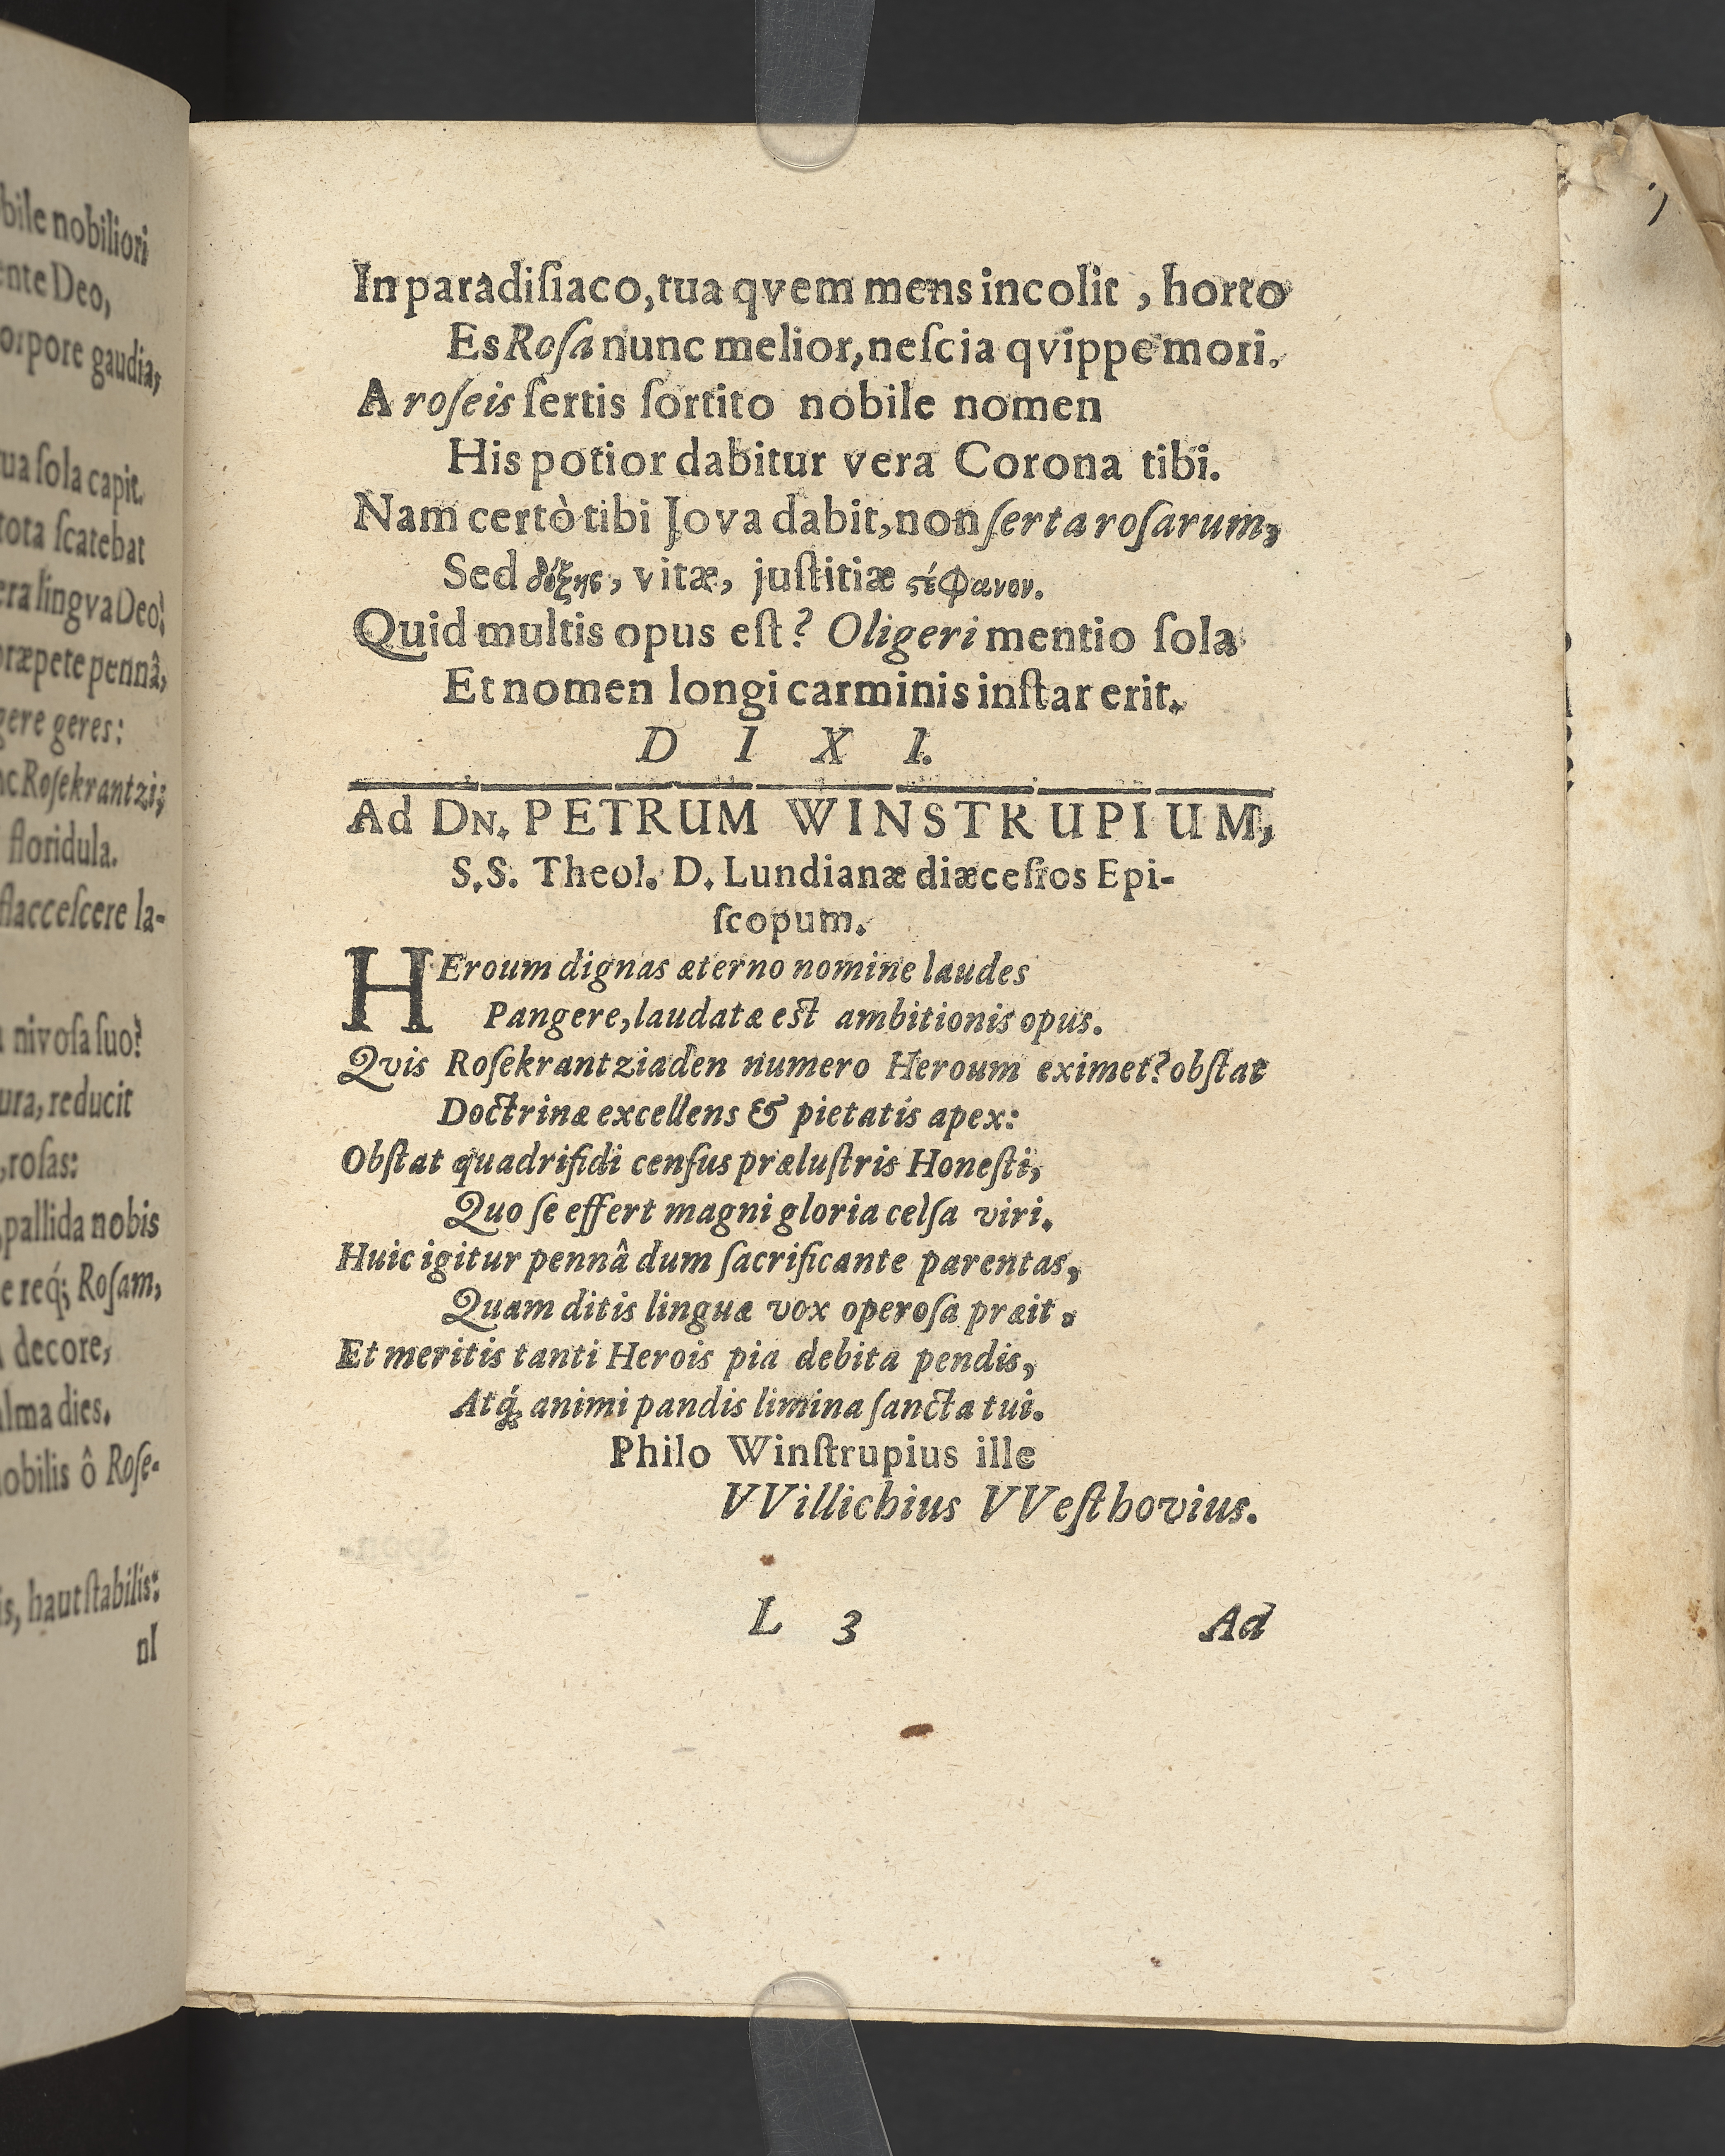 bile nobiliori
ente Deo,
orpore gaudia,
tua ſola capit.
tota ſcatebat
era lingva Deo!
præpete pennâ,
gere geres:
nc Roſekrantzi;
floridula.
flacceſcere la-
nivoſa ſuo?
ura, reducit
, roſas:
pallida nobis
e req́; Roſam,
decore,
alma dies.
nobilis ô Roſe-
is, haut ſtabilis:
nI
In paradiſiaco, tua qvem mens incolit, horto
Es Roſa nunc melior, neſcia qvippe mori.
A roſeis ſertis ſortito nobile nomen
His potior dabitur vera Corona tibi.
Nam certò tibi Jova dabit, non ſerta roſarum,
Sed δόξης, vitæ, juſtitiæ ϛέφανον.
Quid multis opus eſt? Oligeri mentio ſola
Et nomen longi carminis inſtar erit.
D I X I.
Ad DN. PETRUM WINSTRUPIUM,
S.S. Theol. D. Lundianæ diæceſios Epi-
ſcopum.
HEroum dignas æterno nomine laudes
Pangere, laudatæ eſt ambitionis opus.
Qvis Roſekrantziaden numero Heroum eximet? obſtat
Doctrinæ excellens & pietatis apex:
Obſtat quadrifidi cenſus præluſtris Honeſti,
Quo ſe effert magni gloria celſa viri.
Huic igitur pennâ dum ſacrificante parentas,
Quam ditis linguæ vox operoſa præit.
Et meritis tanti Herois pia debita pendis,
Atq́; animi pandis limina ſancta tui.
Philo Winſtrupius ille
VVillichius VVeſthovius.
L 3 Ad